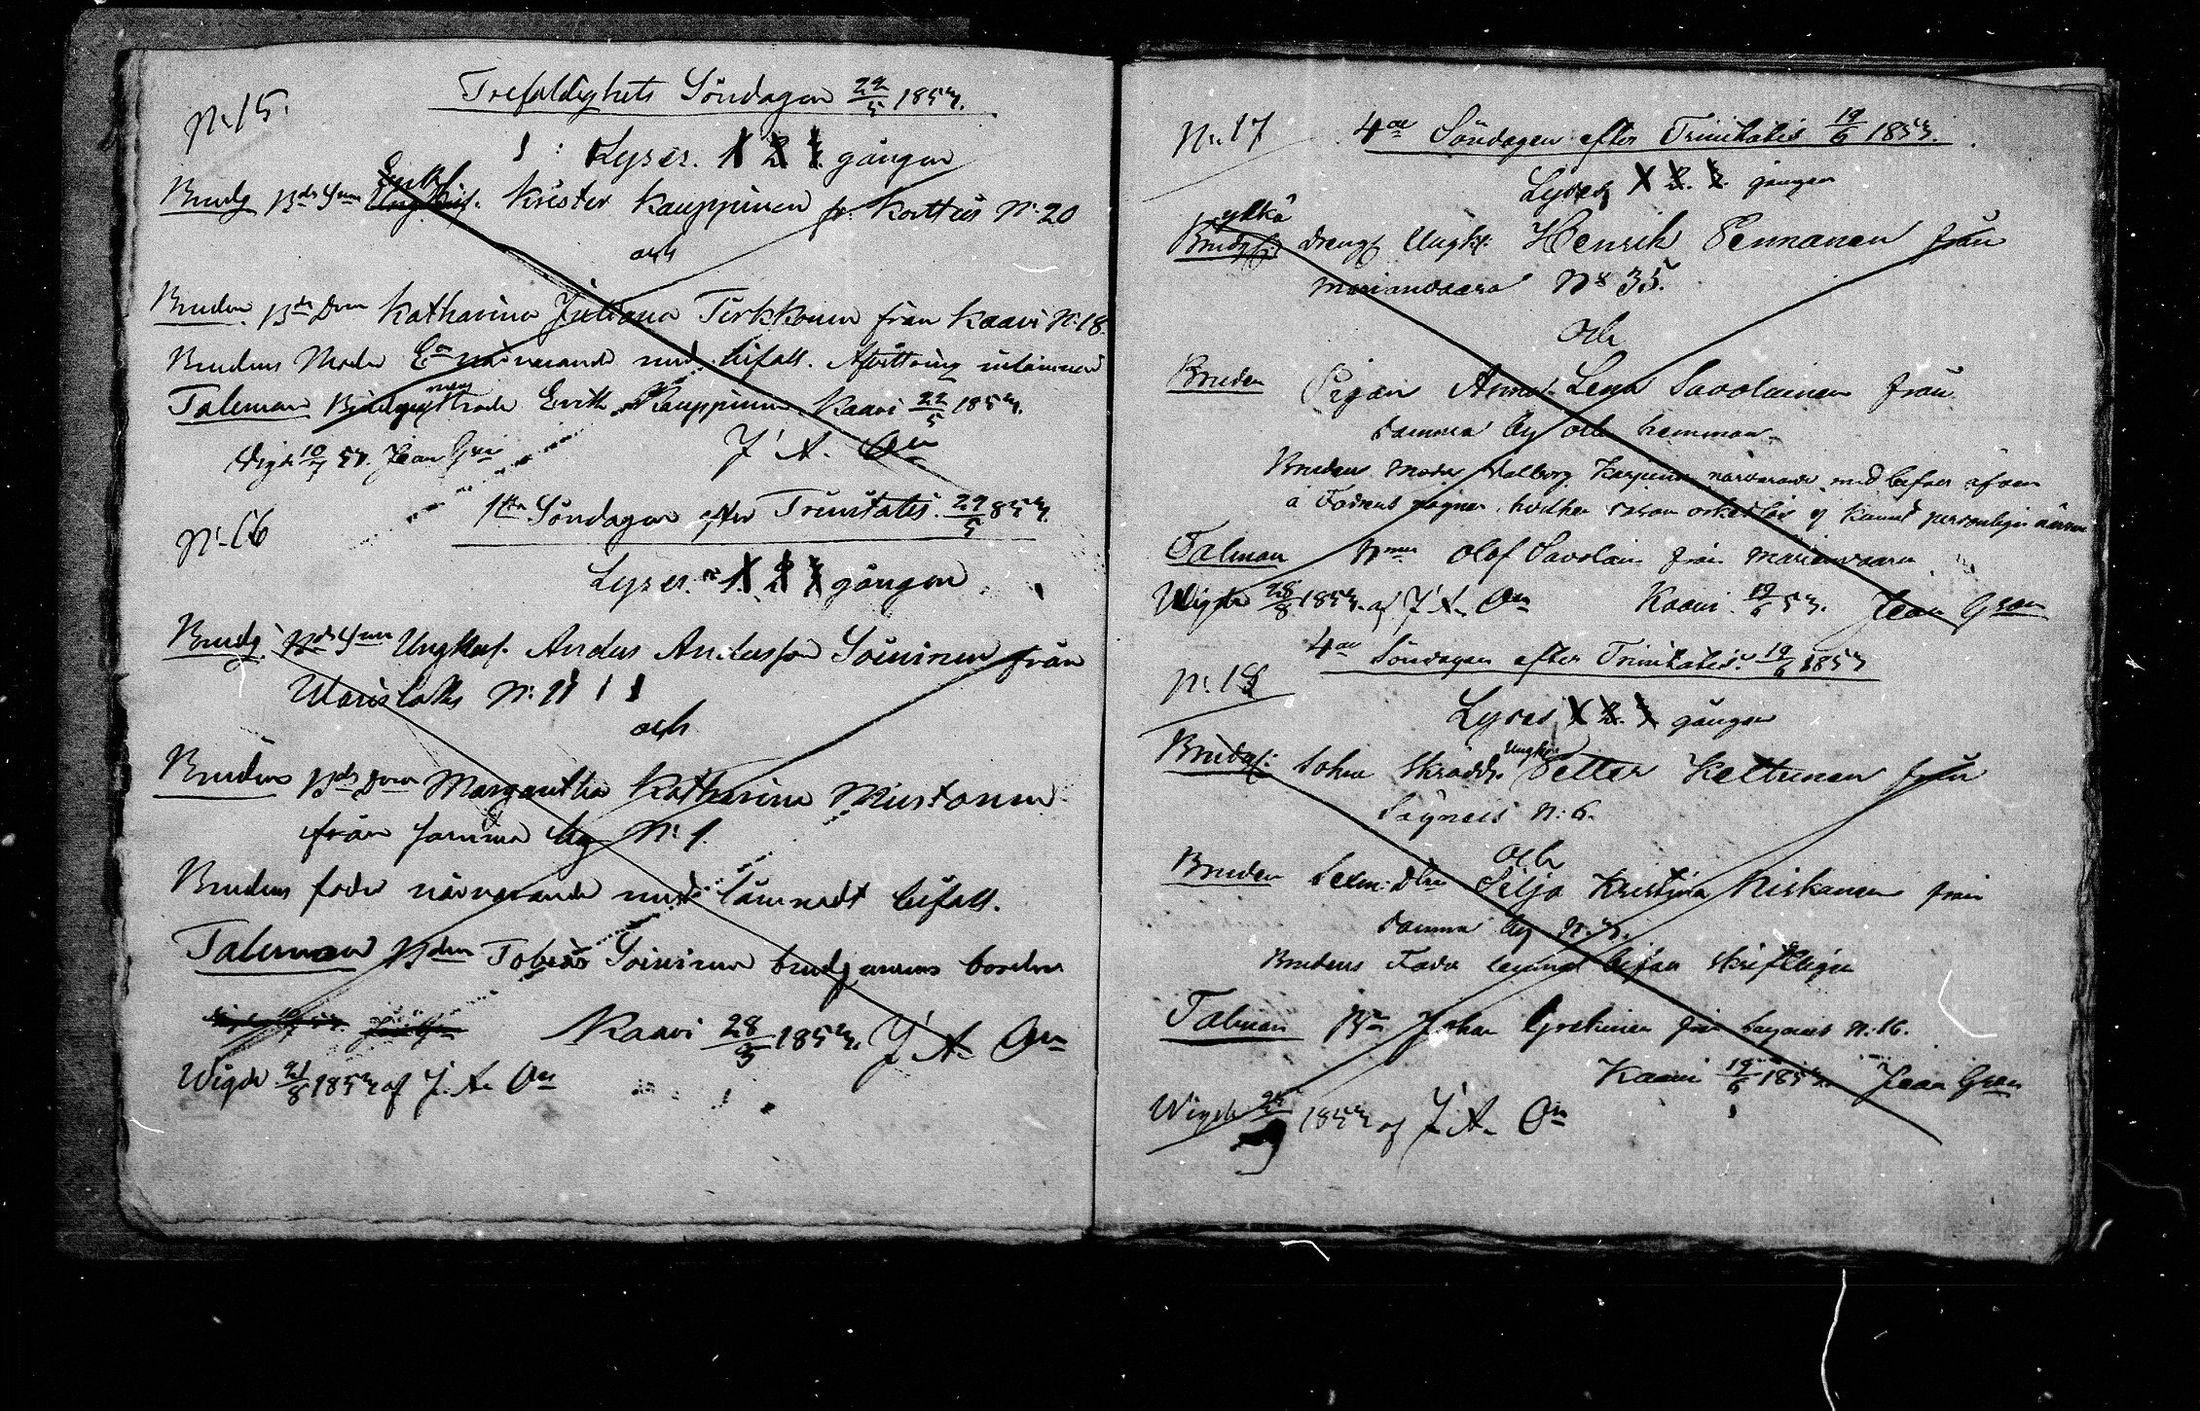 N:15.
Trefaldighets Söndagen 22/5 1853.
Lyses. 1 2 3 gången
Brudg Bde Sonen Enkl. Krister Kauppinen fr. Kortteis N:20
och
Bruden Bde Dren Katharina Juliana Tirkkonen från Kaavi N:18.
Brudens Moder närvarande med bifall. Afvittring inlämnad
Taleman Erik Kauppinen. Kaavi 22/5 1853.
Vigde 10/7 53. Jean Grn
J. A. On
N:16
1sta Söndagen efter Trinitatis. 29/5 1853.
Lyses 1. 2 3 gången
Brudg. Bde Sonen Ungkarl. Anders Andersson Soininen från
N: 11
och
Brudens Bde Dren Margaretha Katharina Mustonen
från samma by N: 1.
Brudens fader närvarande med lämnadt bifall.
Taleman Bden Tobias Soininen brudgummens broder
Kaavi 28/5 1853. J. A. On
Wigde 21/8 1853 af J. A. On
Nr. 17
4de Söndagen efter Trinitatis 19/6 1853.
Lyses 1 2. 3. gången
Brudg: Dreng Ungk: Henrik Pennanen från
Marianvaara N: 35.
och
Bruden Pigan Anna Lena Savolainen från
samma by och hemman
Brudens Moder Walborg närvarande med bifall äfven
å Fadrens vägnar, hvilken såsom ej kunnat personligen
Taleman Olof Savolain från Marianvaara
Wigde 28/8 1853. af J. A. On Kaavi 19/6 53. Jean Gron
4de Söndagen efter Trinitatis. 19/6 1853
N:18
Lyses 1 2. 3 gången
Brudg: Sohn Skrädd. Ungk: Petter Keltunen från
Sägneis N: 6.
och
Bruden Sexm: Dren Silja Kristina Niskanen från
samma by N.
Brudens Fader lemnat bifall skriftligen
Taleman Johan från N:16.
Kaavi 19/6 1853. Jean Gron
Wigde 1853 af J. A. On